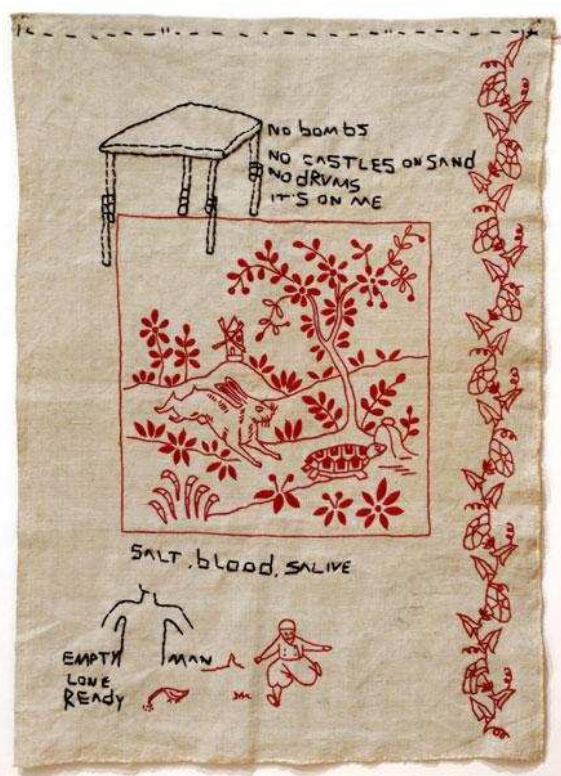 NO bombS
NO CASTLES ON SAND
NO dRUMS
IT'S ON ME
SALT, blood, SALIVE
EMPTY MAN
LONE
READY